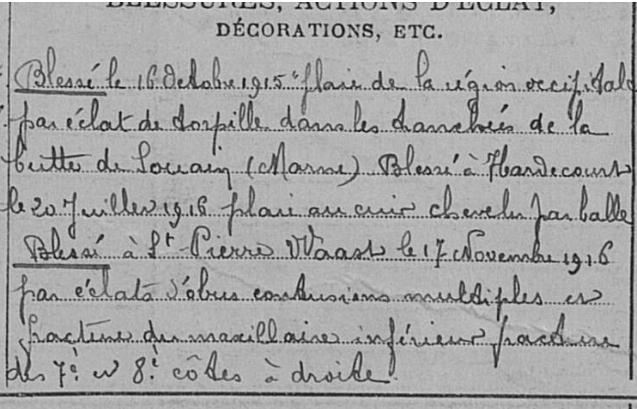 BLESSURES, ACTIONS D'ÉCLAT,
DÉCORATIONS, ETC.
Blessé le 16 Octobre 1915 "plaie de la région occipitale
par éclat de torpille dans les tranchées de la
butte de Souain (Marne) Blessé à Hardecourt
le 20 Juillet 1916 plaie au cuir chevelu par balle
Blessé à St Pierre Waast le 17 Novembre 1916
par éclats d'obus contusions multiples et
fracture du maxillaire inférieur fracture
des 7e et 8e côtes à droite.